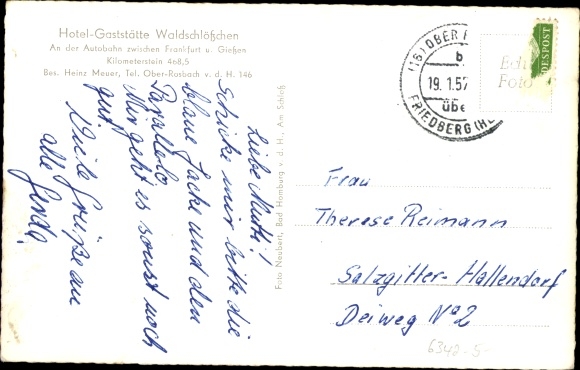 Hotel-Gaststätte Waldschlößchen
An der Autobahn zwischen Frankfurt u. Gießen
Kilometerstein 468,5
Bes. Heinz Meuer, Tel. Ober-Rosbach v. d. H. 146
Liebe Mutti!
Schicke mir bitte die
blaue Jacke und den
Mir geht es sonst noch
gut.
Viele Grüße an
alle
Foto Neubert, Bad Homburg v. d. H., Am Schloß
(16) OBER
b
19.1.57
übe
FRIEDBERG (HE
Echt
Foto
DESPOST
Frau
Therese Reimann
Salzgitter-Hallendorf
Deiweg No 2
6342-5-